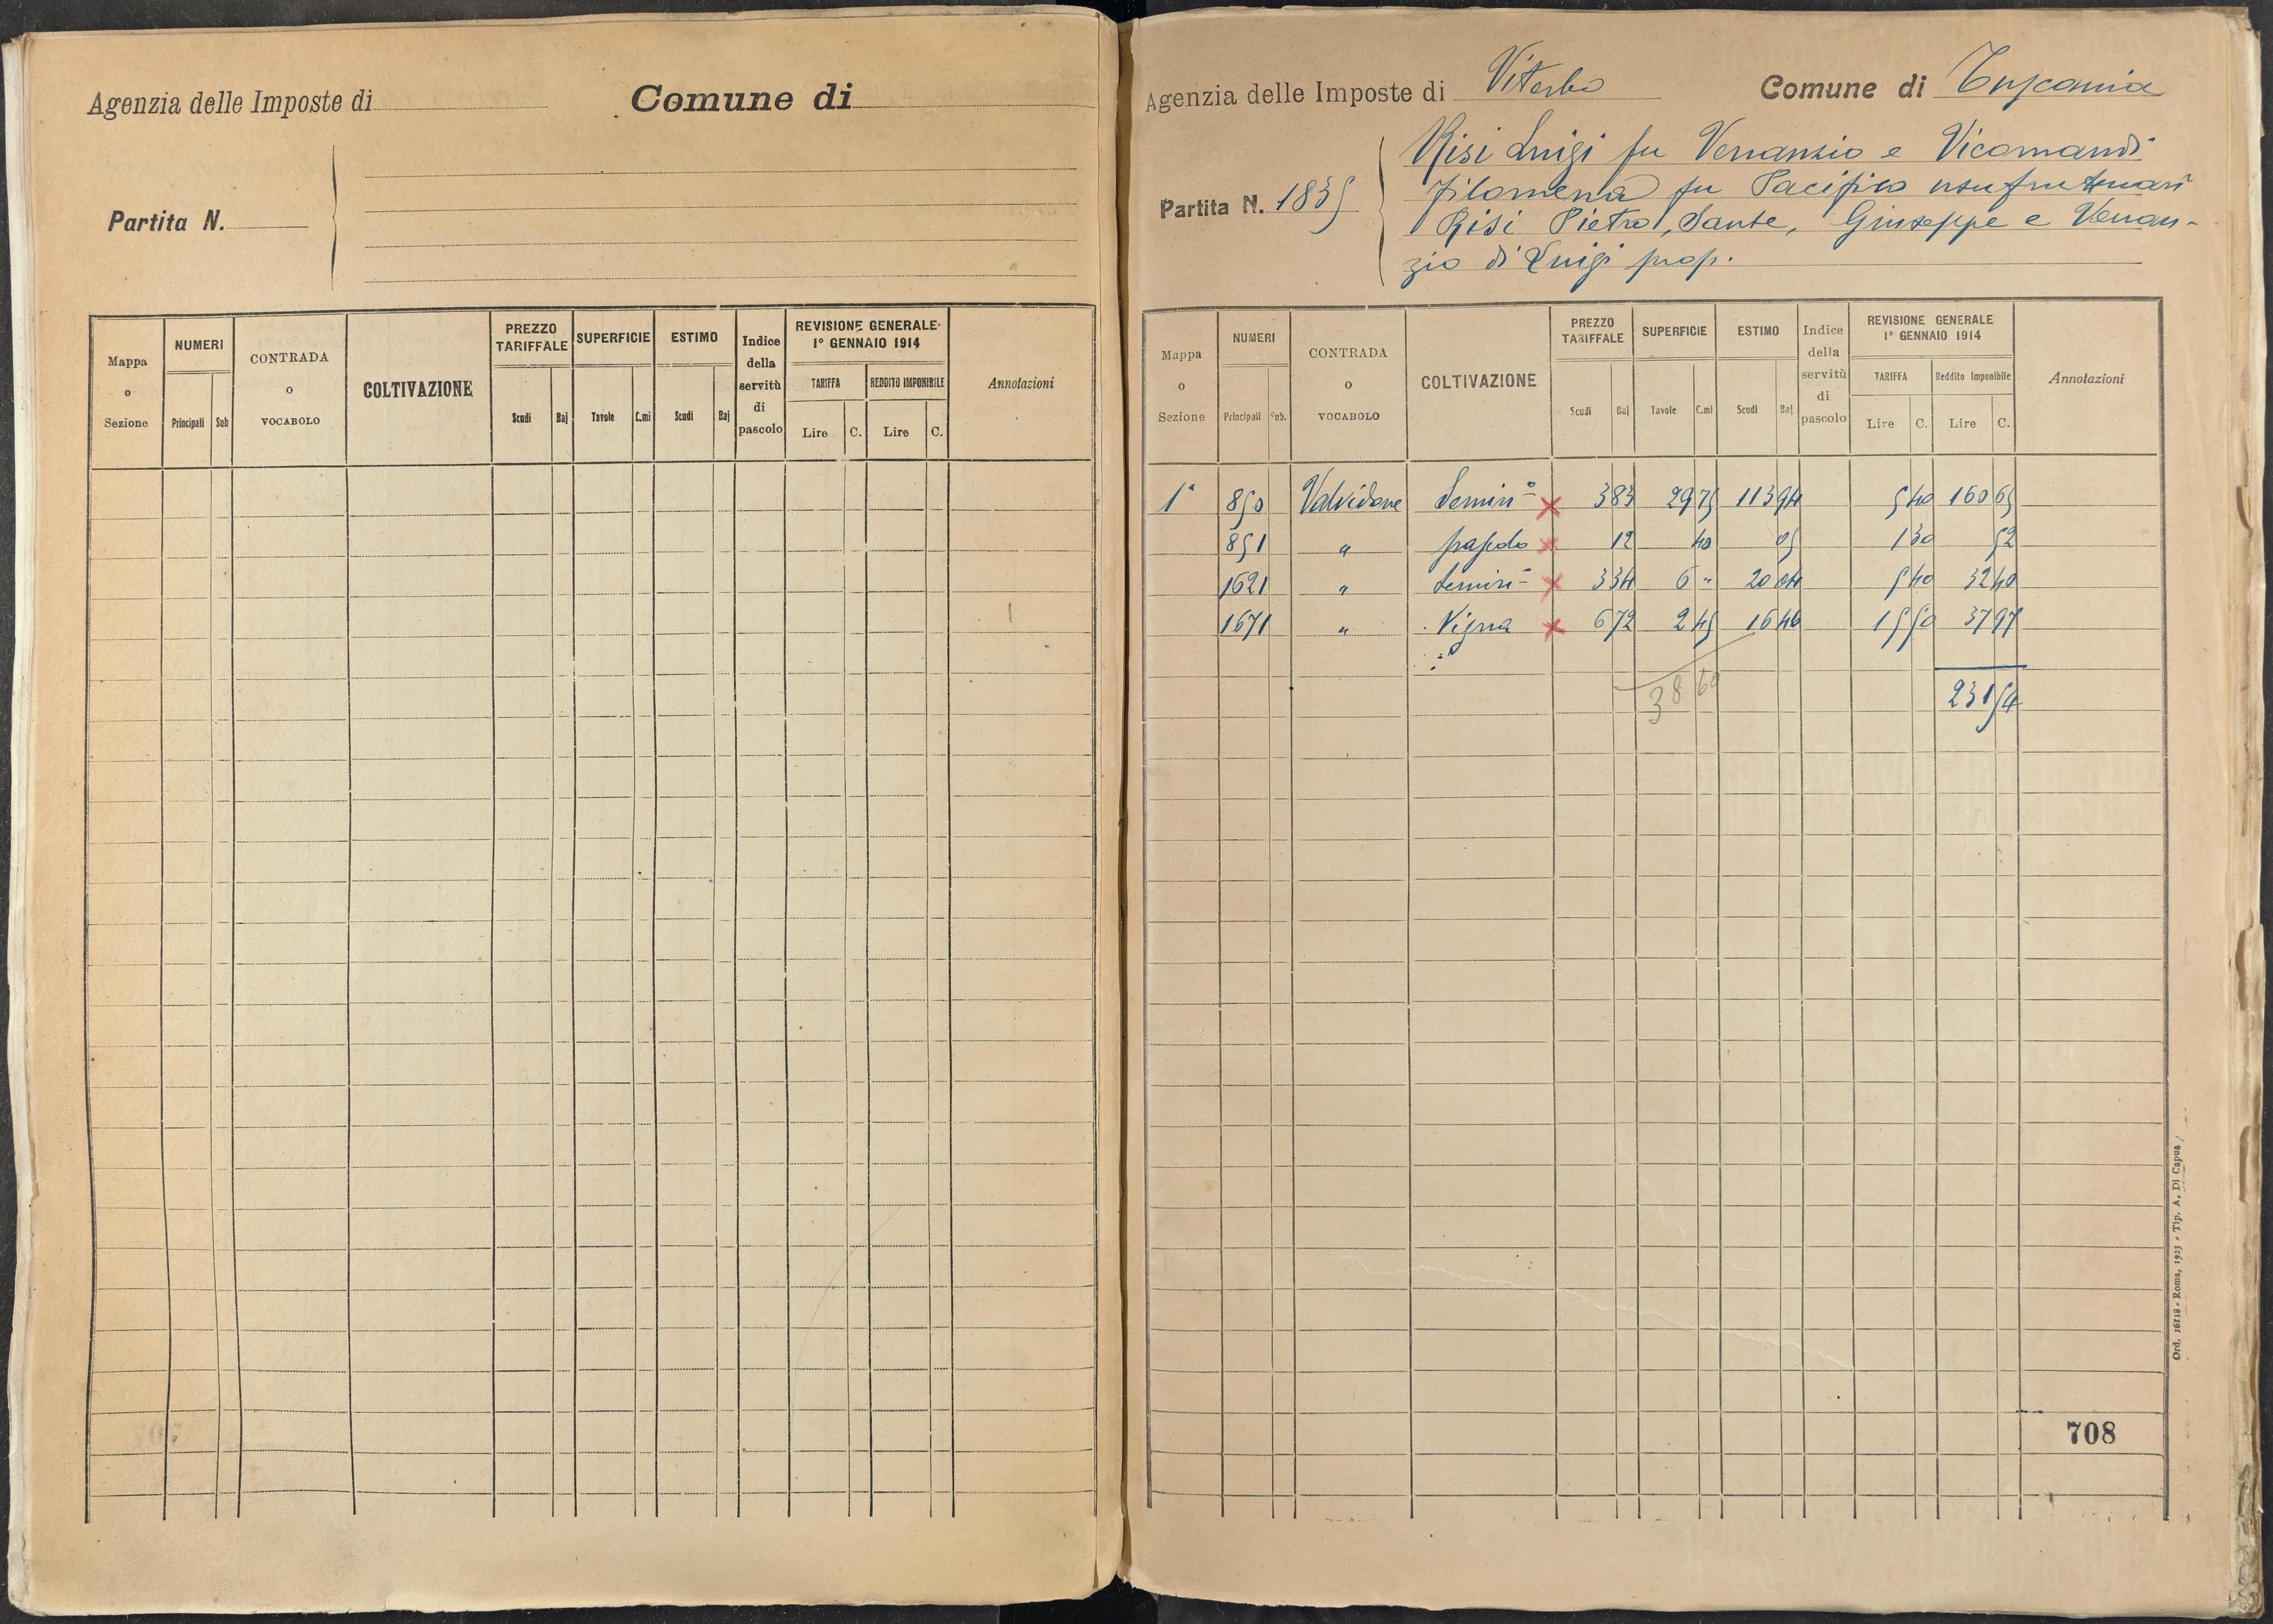 Agenzia delle Imposte di
Comune di
Partita N.
Mappa o Sezione | NUMERI | CONTRADA o VOCABOLO | COLTIVAZIONE | PREZZO TARIFFALE | SUPERFICIE | ESTIMO | Indice della servitù di pascolo | REVISIONE GENERALE 1º GENNAIO 1914 | Annotazioni
TARIFFA | REDDITO IMPONIBILE
Principali | Sub | Scudi | Baj | Tavole | C.mi | Scudi | Baj | Lire | C. | Lire | C.
Agenzia delle Imposte di Viterbo
Comune di Tuscania
Partita N. 1835
Risi Luigi fu Venanzio e Vicomandi
Filomena fu Pacifico usufruttuari
Risi Pietro, Sante, Giuseppe e Venan-
zio di Luigi prop.
Mappa o Sezione | NUMERI | CONTRADA o VOCABOLO | COLTIVAZIONE | PREZZO TARIFFALE | SUPERFICIE | ESTIMO | Indice della servitù di pascolo | REVISIONE GENERALE 1º GENNAIO 1914 | Annotazioni
TARIFFA | Reddito Imponibile
Principali | Sub. | Scudi | Baj | Tavole | C.mi | Scudi | Baj | Lire | C. | Lire | C.
1ª 850 Valvidone Semin.º × 3 83 29 75 113 94 5 40 160 65
851 " pascolo × 12 40 05 1 30 52
1621 " semin.º × 3 34 6 " 20 04 5 40 32 40
1671 " Vigna × 6 72 2 45 16 46 15 50 37 97
38 60
231 54
708
Ord. 16818 - Roma, 1923 - Tip. A. Di Capua